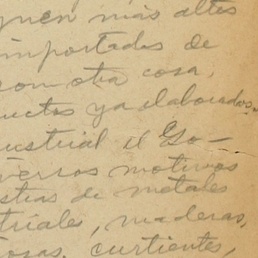 quen más altos
importados de
con otra cosa,
uctos ya elaborados.
ustrial el Go-
versos motivos
stias de metales
triales, maderas,
osas, curtientes,